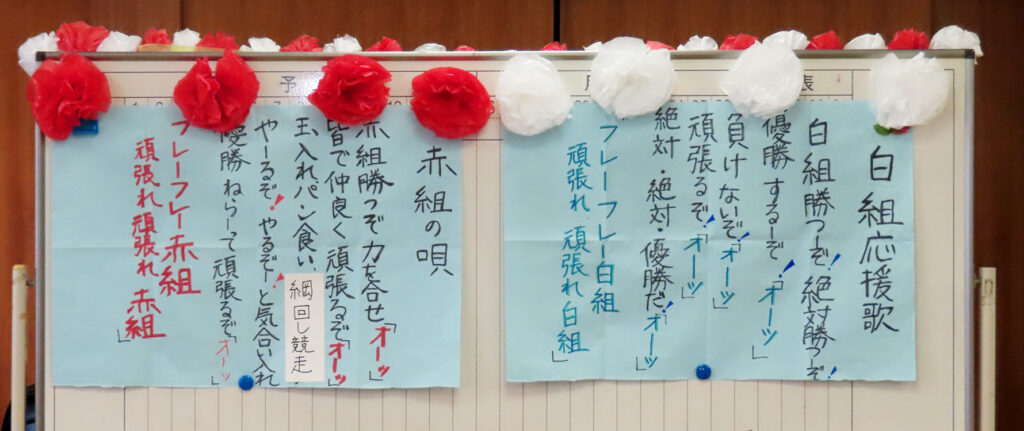 白組応援歌
白組勝つーぞ!絶対勝つーぞ!
優勝するーぞ!「オーッ」
負けないぞ!「オーッ」
頑張るぞ!「オーッ」
絶対・絶対・優勝だ!「オーッ」
フレーフレー白組
頑張れ頑張れ白組」
赤組の唄
赤組勝つぞ力を合せ「オーッ」
皆で仲良く頑張るぞ「オーッ」
玉入れパン食い、綱回し競走
やーるぞ!やるぞー!と気合い入れ
優勝ねらーって頑張るぞ「オーッ」
フレーフレー赤組
頑張れ頑張れ赤組」
予
表